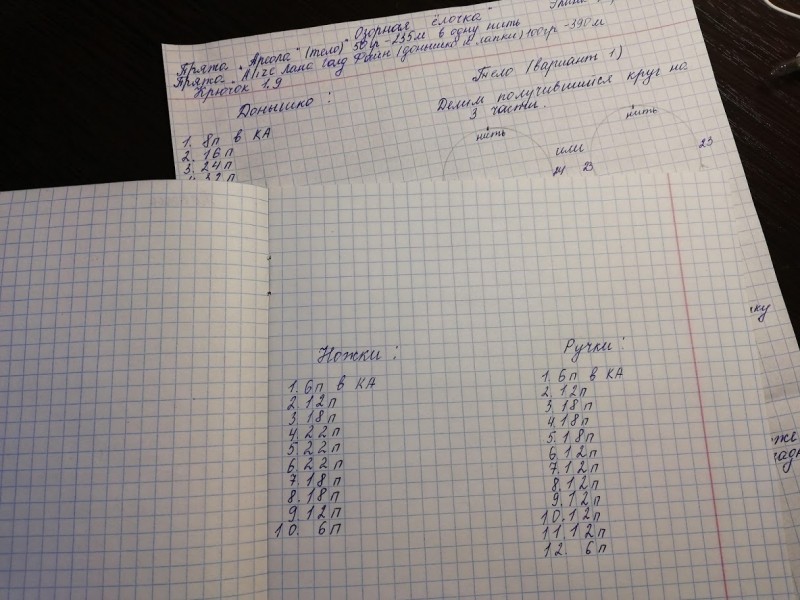 Озорная ёлочка"
Пряжа "Ангора" (тело) 50гр -235м в одну нить
Пряжа "Alize Лана Голд Файн (донышко и лапки) 100гр -390м
Крючок 1,9
Донышко:
1. 8п в КА
2. 16п
3. 24п
4. 32п
Тело (вариант 1)
Делим получившийся круг на
3 части.
нить
или
нить
24
23
23
Ножки:
1. 6п в КА
2. 12п
3. 18п
4. 22п
5. 22п
6. 22п
7. 18п
8. 18п
9. 12п
10. 6п
Ручки:
1. 6п в КА
2. 12п
3. 18п
4. 18п
5. 18п
6. 12п
7. 12п
8. 12п
9. 12п
10. 12п
11. 12п
12. 6п